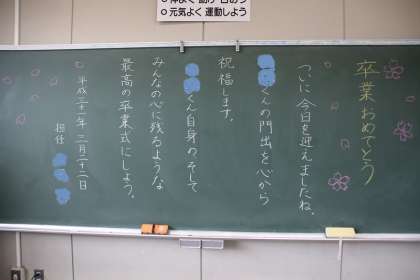 元気よく 運動しよう
卒業おめでとう
ついに今日を迎えましたね。
くんの門出を心から
祝福します。
くん自身の、そして
みんなの心に残るような
最高の卒業式にしよう。
平成 二十二日
担任